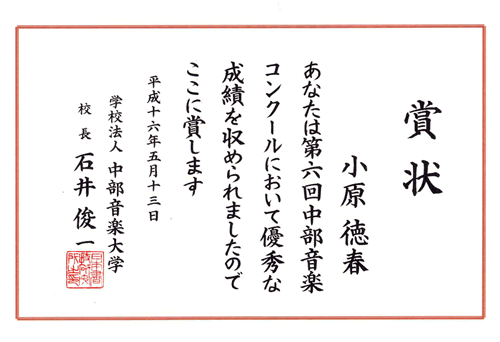 賞状
小原徳春
あなたは第六回中部音楽
コンクールにおいて優秀な
成績を収められましたので
ここに賞します
平成十六年五月十三日
学校法人 中部音楽大学
校長 石井俊一